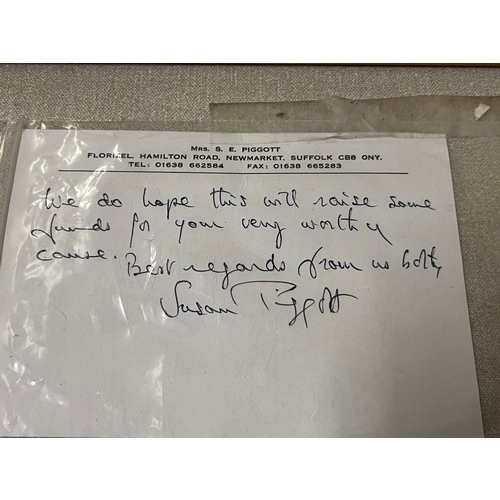 MRS. S. E. PIGGOTT
FLORIZEL, HAMILTON ROAD, NEWMARKET, SUFFOLK CB8 ONY.
TEL: 01638 662584 FAX: 01638 665283
We do hope this will raise some
funds for your very worthy
cause.
Best regards from us both,
Susan Piggott